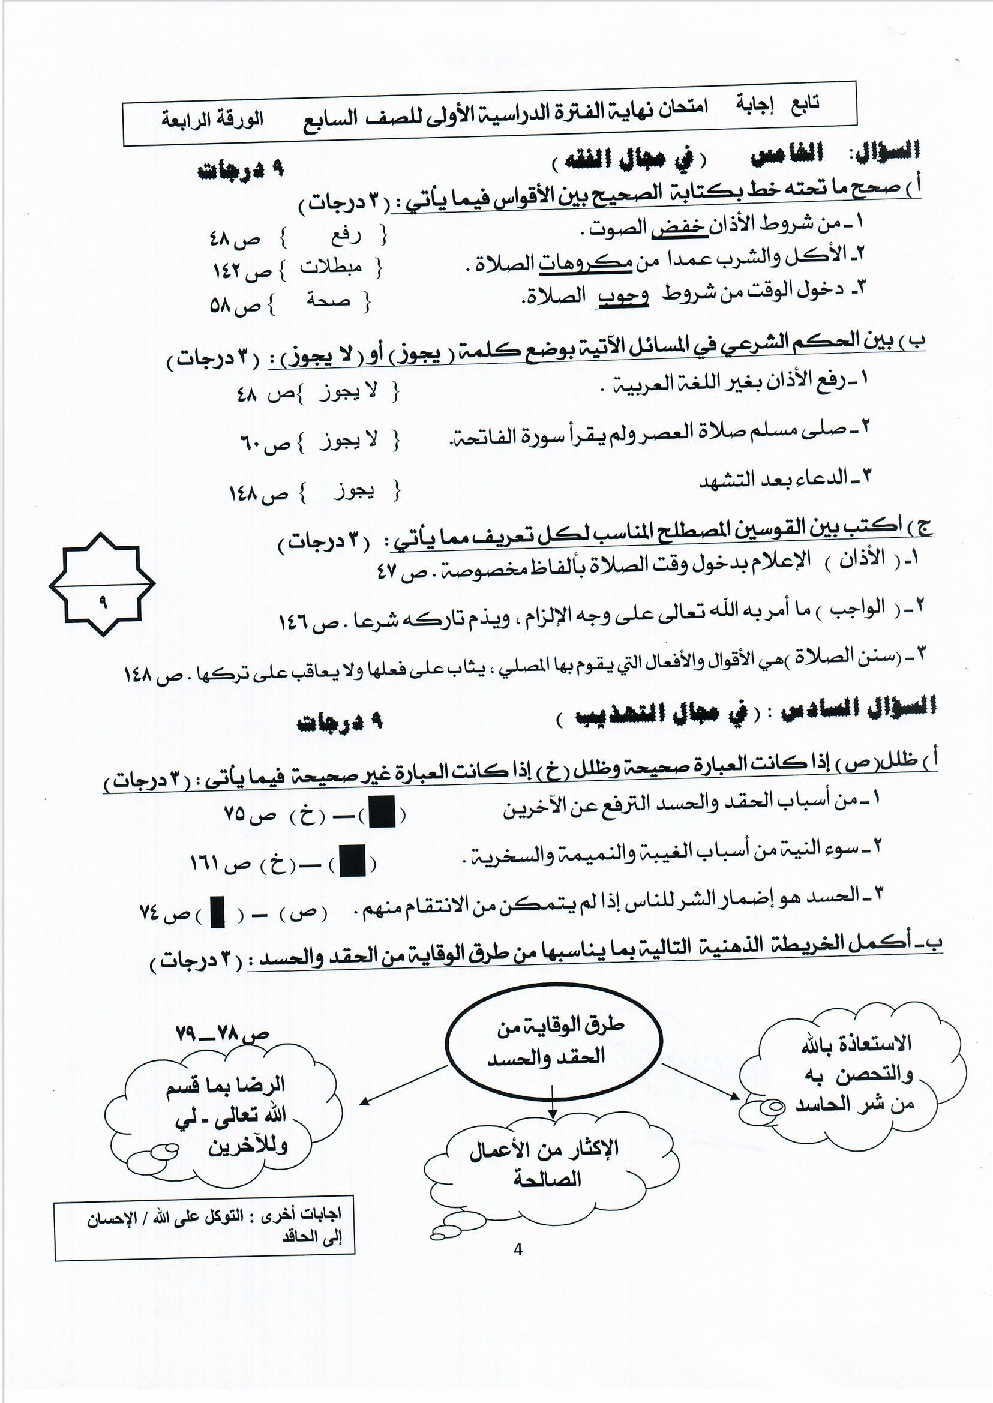 تابع إجابة امتحان نهاية الفترة الدراسية الأولى للصف السابع الورقة الرابعة
السؤال: الخامس ( في مجال الفقه ) ٩ درجات
أ) صحح ما تحته خط بكتابة الصحيح بين الأقواس فيما يأتي : ( ٣ درجات )
١- من شروط الأذان خفض الصوت . { رفع } ص ٤٨
٢- الأكل والشرب عمدا من مكروهات الصلاة . { مبطلات } ص ١٤٢
٣- دخول الوقت من شروط وجوب الصلاة. { صحة } ص ٥٨
ب) بين الحكم الشرعي في المسائل الآتية بوضع كلمة ( يجوز ) أو ( لا يجوز ) : ( ٣ درجات )
١- رفع الأذان بغير اللغة العربية . { لا يجوز } ص ٤٨
٢- صلى مسلم صلاة العصر ولم يقرأ سورة الفاتحة. { لا يجوز } ص ٦٠
٣- الدعاء بعد التشهد { يجوز } ص ١٤٨
ج) اكتب بين القوسين المصطلح المناسب لكل تعريف مما يأتي : ( ٣ درجات )
١- ( الأذان ) الإعلام بدخول وقت الصلاة بألفاظ مخصوصة . ص ٤٧
٩
٢- ( الواجب ) ما أمر به الله تعالى على وجه الإلزام ، ويذم تاركه شرعا . ص ١٤٦
٣- (سنن الصلاة ) هي الأقوال والأفعال التي يقوم بها المصلي ؛ يثاب على فعلها ولا يعاقب على تركها . ص ١٤٨
السؤال السادس : ( في مجال التهذيب ) ٩ درجات
أ) ظلل (ص) إذا كانت العبارة صحيحة وظلل (خ) إذا كانت العبارة غير صحيحة فيما يأتي : ( ٣ درجات )
١- من أسباب الحقد والحسد الترفع عن الآخرين ( ) – (خ) ص ٧٥
٢- سوء النية من أسباب الغيبة والنميمة والسخرية . ( ) – (خ) ص ١٦١
٣- الحسد هو إضمار الشر للناس إذا لم يتمكن من الانتقام منهم. (ص) – ( ) ص ٧٤
ب- أكمل الخريطة الذهنية التالية بما يناسبها من طرق الوقاية من الحقد والحسد : ( ٣ درجات )
طرق الوقاية من
الحقد والحسد
ص ٧٨ – ٧٩
الاستعاذة بالله
والتحصن به
من شر الحاسد
الإكثار من الأعمال
الصالحة
الرضا بما قسم
الله تعالى - لي
وللآخرين
اجابات أخرى : التوكل على الله / الإحسان
إلى الحاقد
4